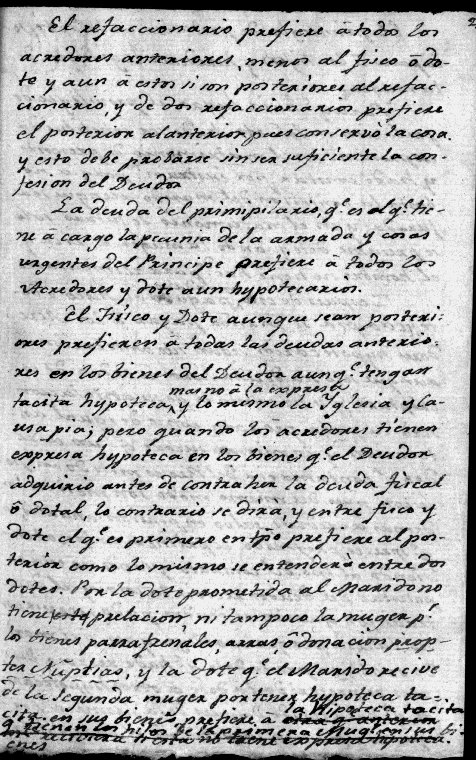 El refaccionario prefiere â todos los
acredores anteriores, menos al fisco ô do-
te y aun â estos si son posteriores al refac-
cionario, y de dos refaccionarios prefiere
el posterior al anterior pues conservò la cosa.
y esto debe probarse sin ser suficiente la con-
fesion del Deudor
La deuda del primipilario, q.e es el q.e tie-
ne â cargo la pecunia de la armada y cosas
urgentes del Principe prefiere â todos los
Acredores y dote aun hypotecarios.
El Fisco y Dote aunque sean posteri-
ores prefieren â todas las deudas anterio-
res en los bienes del Deudor aunq.e tengan
mas no â la expresa
tacita hypoteca, y lo mismo la Yglesia y ca-
usa pia; pero quando los acredores tienen
expresa hypoteca en los bienes q.e el Deudor
adquirio antes de contraher la deuda fiscal
ô dotal, lo contrario se dira, y entre fisco y
dote el q.e es primero en tpo prefiere al pos-
terior como lo mismo se entenderà entre dos
dotes. Por la dote prometida al Marido no
tiene esta prelacion, ni tampoco la muger p.r
los bienes parrafrenales, arras, ô donacion prop-
ter Nuptias, y la dote q.e el Marido recive
de la segunda muger por tener hypoteca ta-
cita en sus bienes, prefiere a
la Hipoteca tacita
q.e tienen los hijos de la primera Mug.r en sus bi-
enes